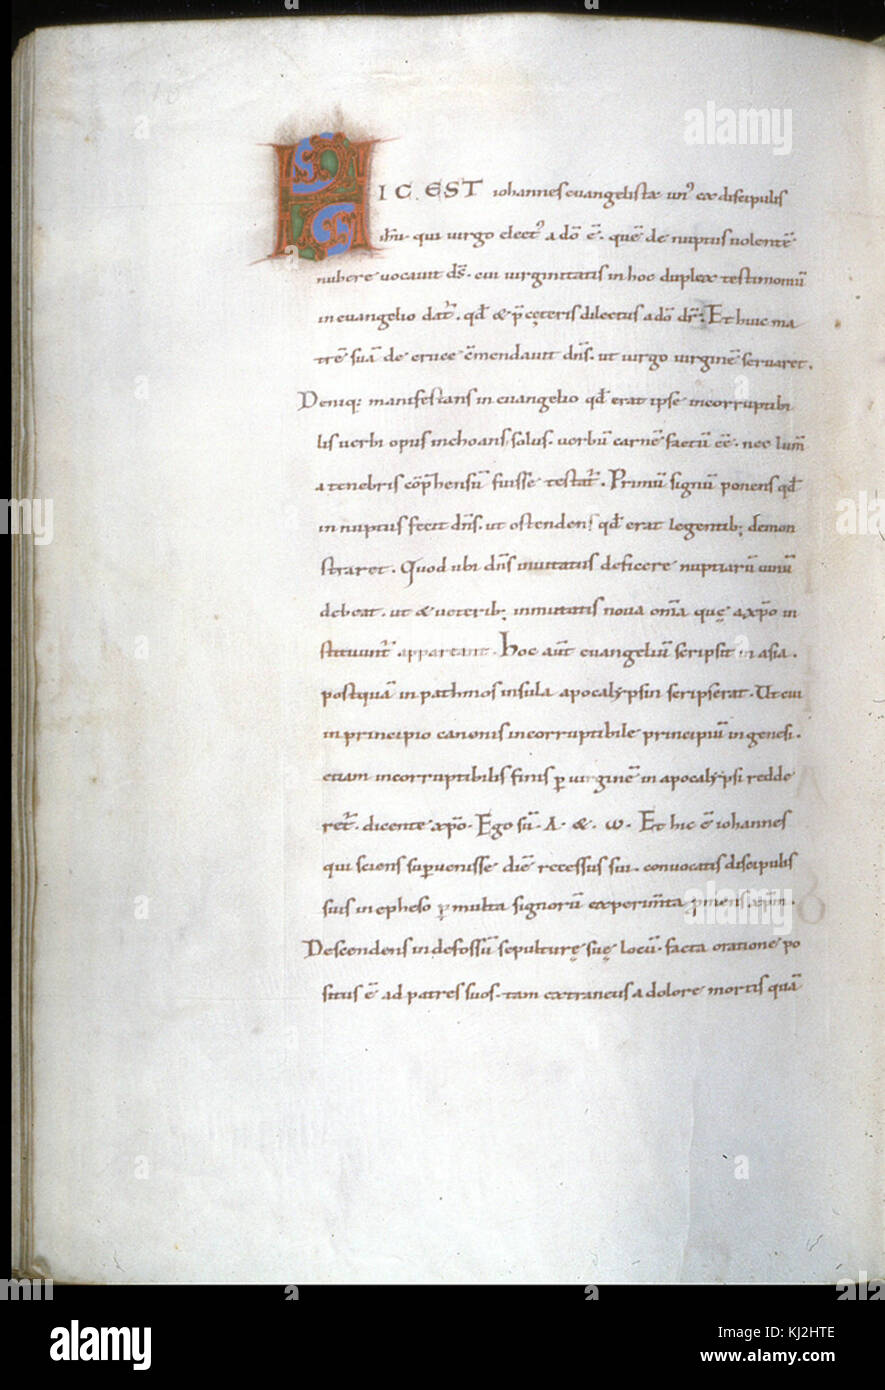 HIC EST iohannes evangelista un' ex discipulis
ihū· qui virgo elect' a dō ē· quē de nuptiis volentē
nubere vocavit dš· cui virginitatis in hoc duplex testimoniū
in evangelio dat̄· qd̄ & p̄ cęteris dilectus a dō dr̄· Et huic ma
trē suā de cruce c̄mendavit dn̄s· ut virgo virginē servaret·
Deniq; manifestans in evangelio qd̄ erat ipse incorruptibi
lis verbi opus inchoans, solus· verbū carnē factū ēe· nec lum̄
a tenebris cōp̄hensū fuisse testat̄· Primū signū ponens qd̄
in nuptiis fecit dn̄s· ut ostendens qd̄ erat legentib; demon
straret· Quod ubi dn̄s invitatus deficere nuptiarū vinū
debeat· ut & veterib; inmutatis nova om̄ia quę a xp̄o in
stituunt̄ appareant· Hoc aūt evangeliū scripsit in asia·
postquā in pathmos insula apocalypsin scripserat· Ut cui
in principio canonis incorruptibile principiū in genesi·
etiam incorruptibilis finis p̱ virginē in apocalypsi redde
ret̄· dicente xp̄o· Ego sū· A· &· ω· Et hic ē iohannes
qui sciens sup̱venisse diē recessus sui· convocatis discipulis
suis in epheso p̱ multa signorū experim̄ta p̱mens xp̄m·
Descendens in defossū sepulturę suę locū· facta oratione po
situs ē ad patres suos· tam extraneus a dolore mortis quā
alamy
alamy
Image ID: KJ2HTE
www.alamy.com